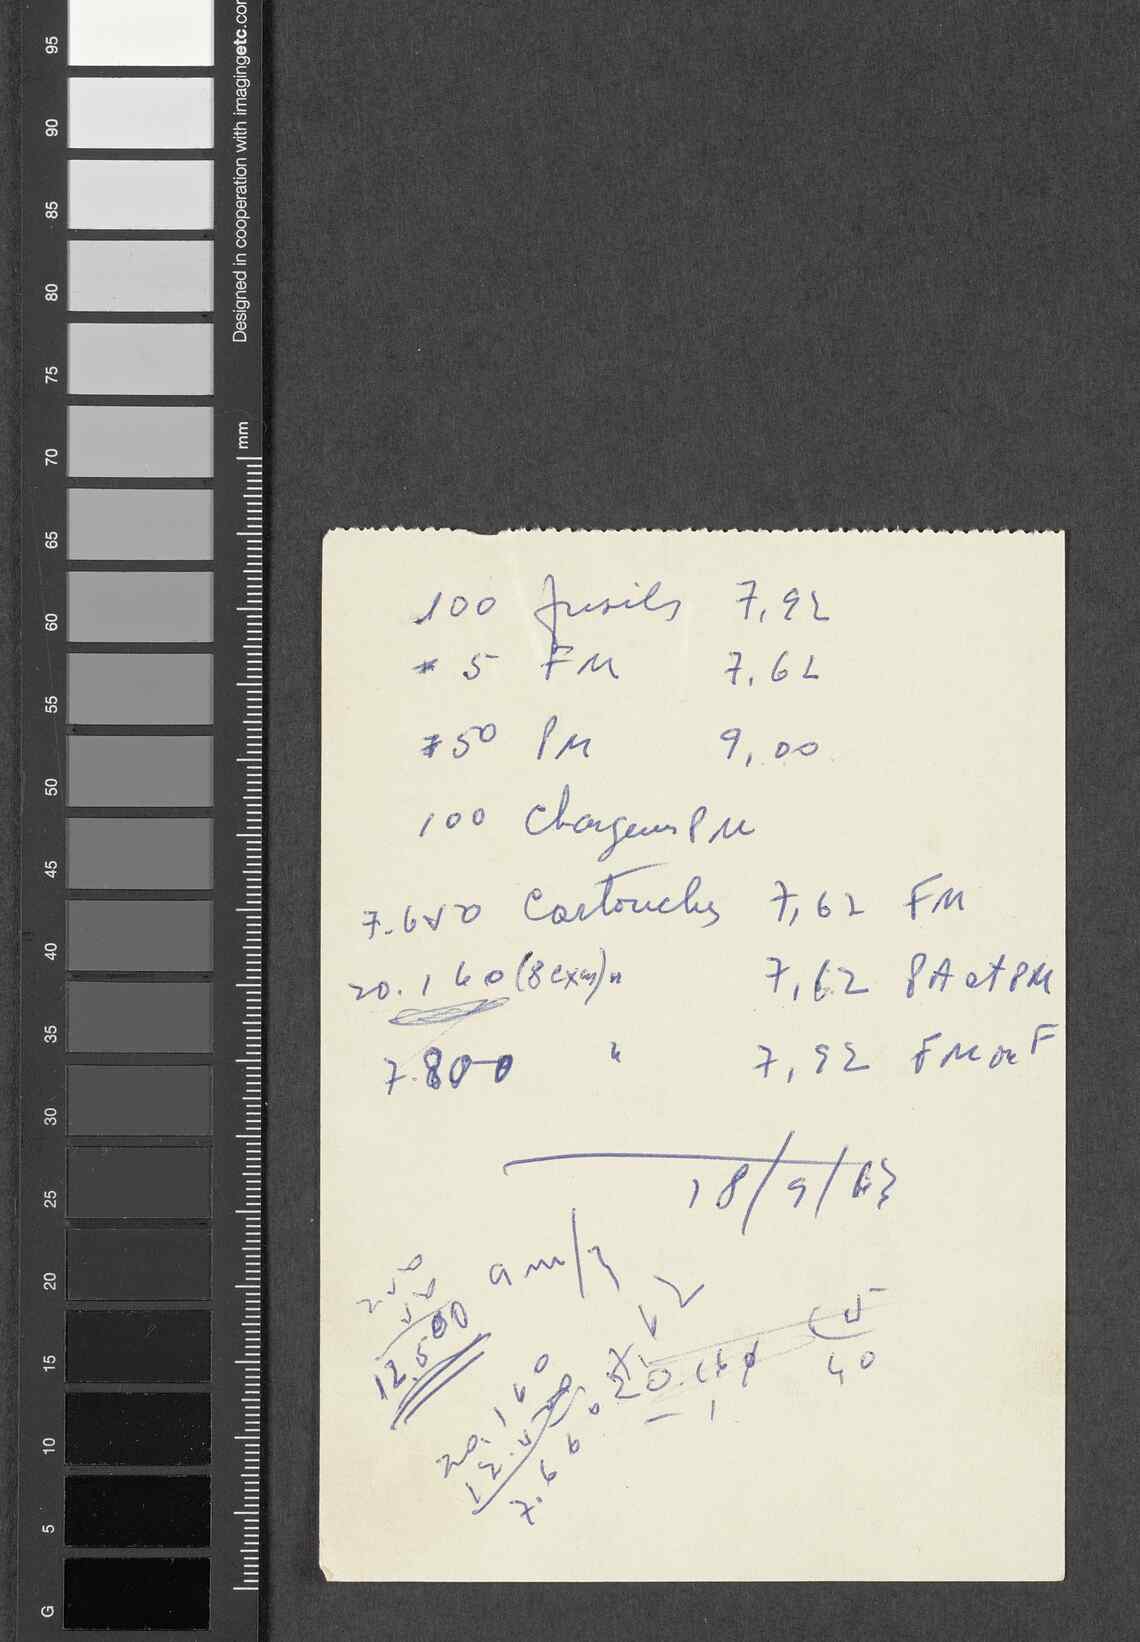 95
90
85
80
75
70
65
60
55
50
45
40
35
30
25
20
15
10
5
G
Designed in cooperation with imagingetc.com
mm
100 fusils 7,92
5 FM 7,62
50 PM 9,00
100 Chargeurs PM
7.650 Cartouches 7,62 FM
20.160 (8 cxes) " 7,62 PA et PM
7.800 " 7,92 FM ou F
18/9/63
250
50
12.500
20.160
12.500
7.660
20.160
45
40
- 1